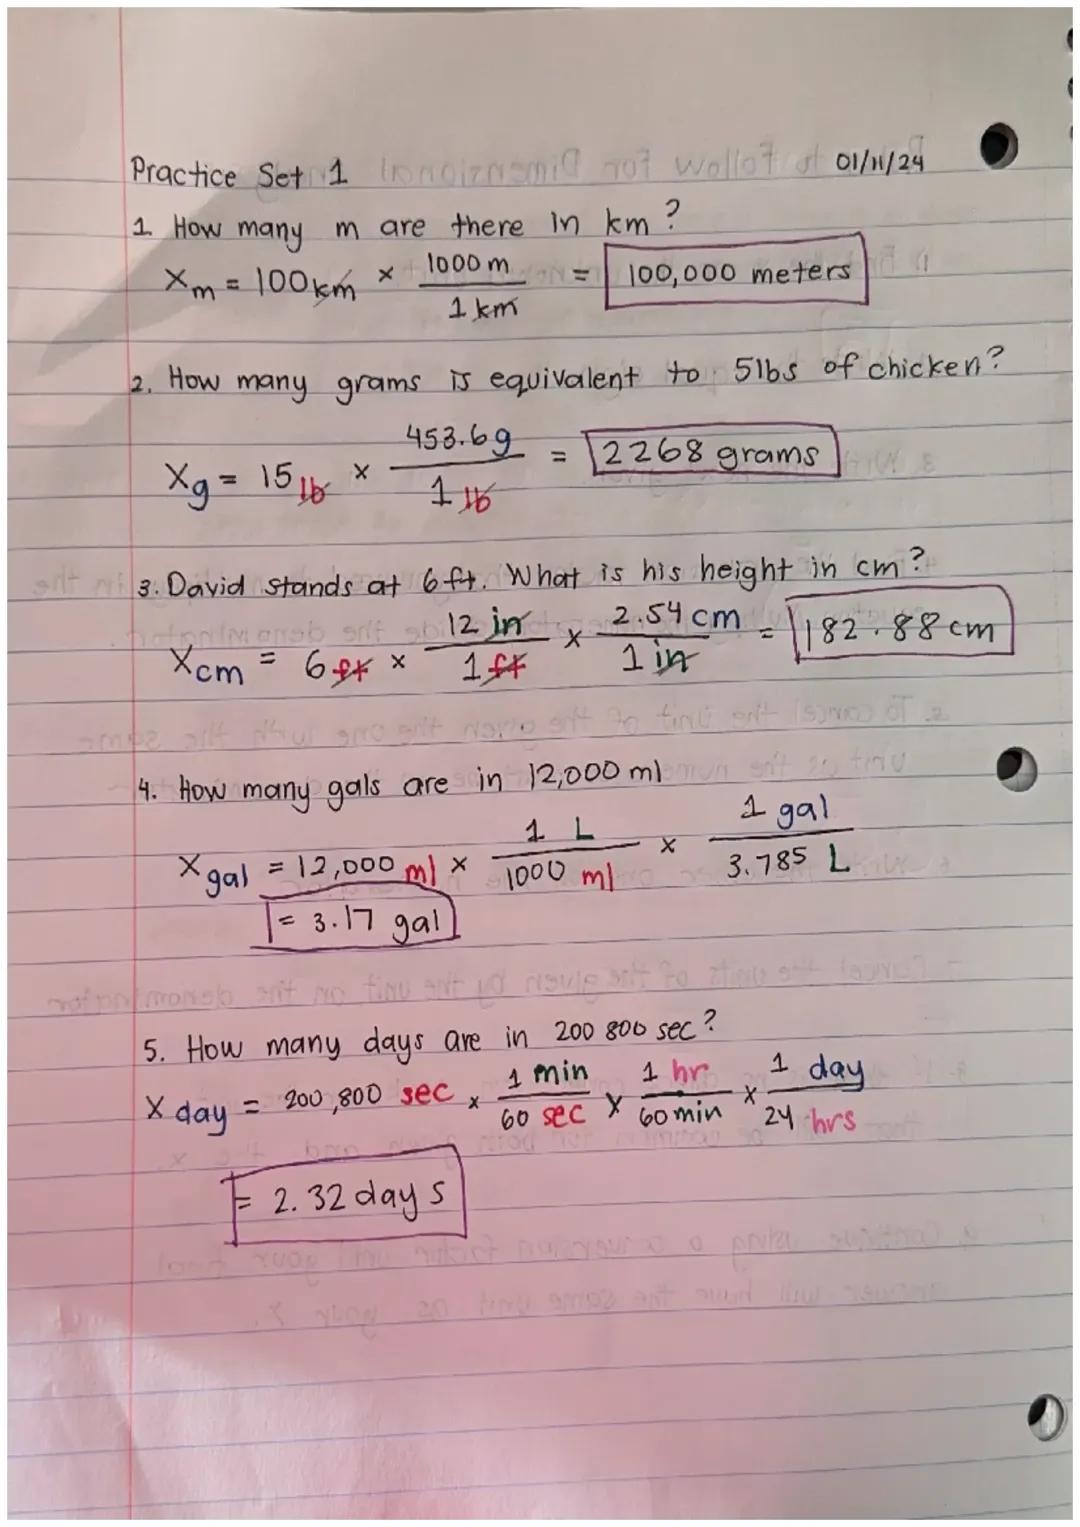 Practice Set 1 01/11/24
1. How many m are there in km?
Xm = 100km × 1000 m / 1 km = 100,000 meters
2. How many grams is equivalent to 5lbs of chicken?
Xg = 15 lb × 453.6g / 1 lb = 2268 grams
3. David stands at 6 ft. What is his height in cm?
Xcm = 6 ft × 12 in / 1 ft × 2.54 cm / 1 in = 182.88 cm
4. How many gals are in 12,000 ml
X gal = 12,000 ml × 1 L / 1000 ml × 1 gal / 3.785 L
= 3.17 gal
5. How many days are in 200 800 sec?
X day = 200,800 sec × 1 min / 60 sec × 1 hr / 60 min × 1 day / 24 hrs
= 2.32 days